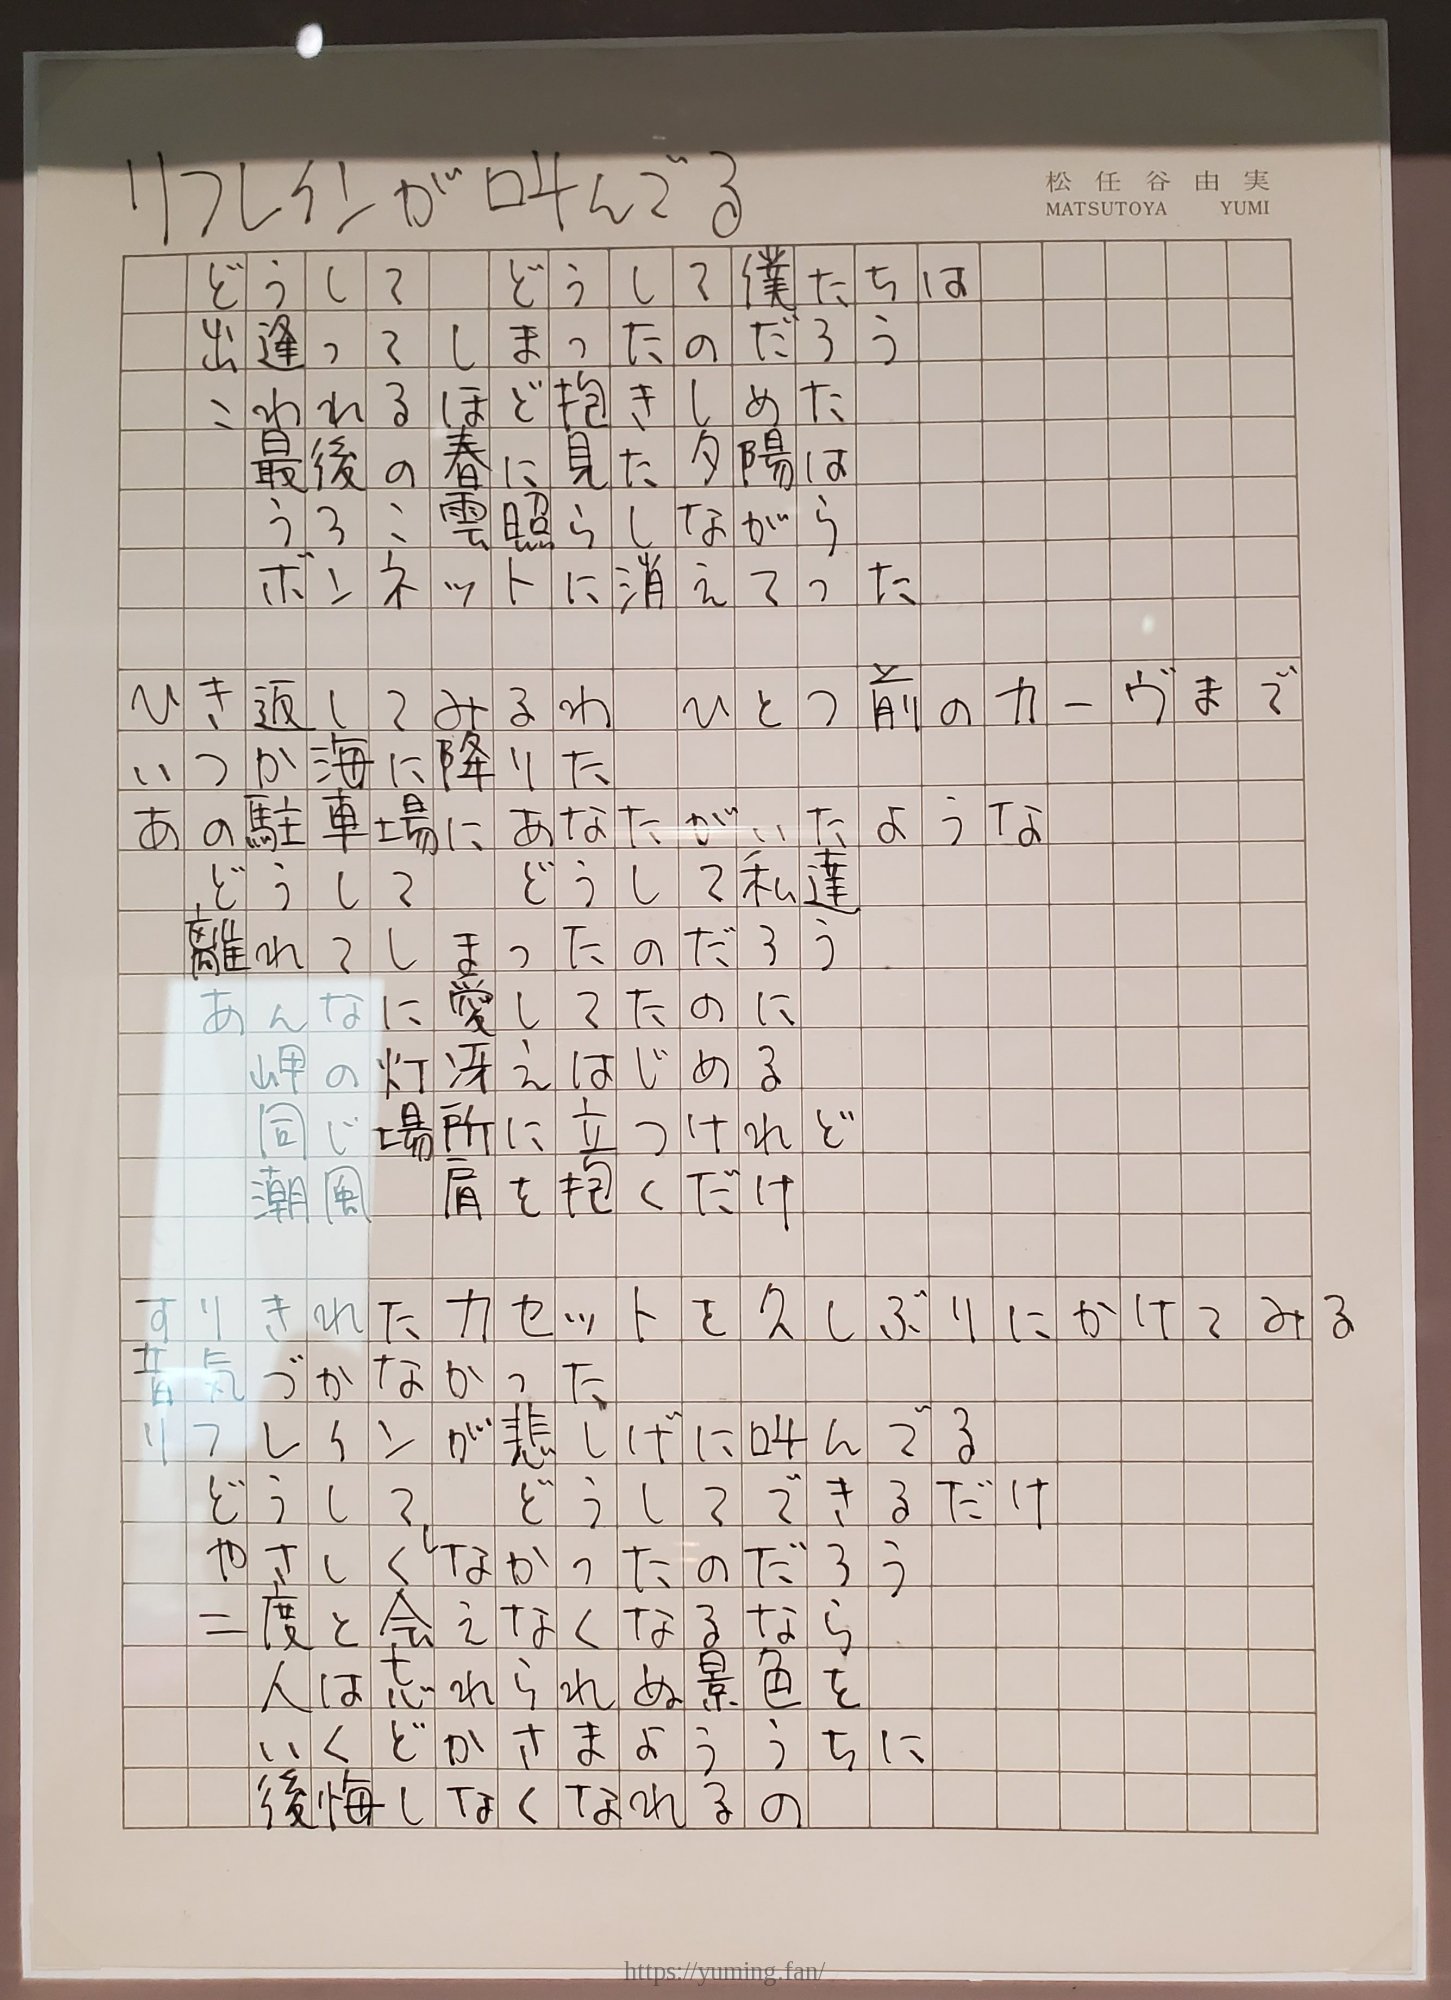 リフレインが叫んでる
松任谷由実
MATSUTOYA YUMI
どうして どうして僕たちは
出逢ってしまったのだろう
こわれるほど抱きしめた
最後の春に見た夕陽は
うろこ雲照らしながら
ボンネットに消えてった
ひき返してみるわ ひとつ前のカーヴまで
いつか海に降りた
あの駐車場にあなたがいたような
どうして どうして私達
離れてしまったのだろう
あんなに愛してたのに
岬の灯冴えはじめる
同じ場所に立つけれど
潮風 肩を抱くだけ
すりきれたカセットを久しぶりにかけてみる
昔気づかなかった
リフレインが悲しげに叫んでる
どうして どうしてできるだけ
やさしくしなかったのだろう
二度と会えなくなるなら
人は忘れられぬ景色を
いくどかさまよううちに
後悔しなくなれるの
https://yuming.fan/